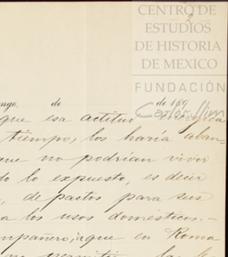 CENTRO DE
ESTUDIOS
DE HISTORIA
DE MEXICO
FUNDACIÓN
Carlos Slim
de de 189
que esa actitud
tiempo, los haría aban-
que no podrían vivir
do lo expuesto, es decir
, de pactos para sus
a los usos domésticos.-
mpañero, que en Roma
no la